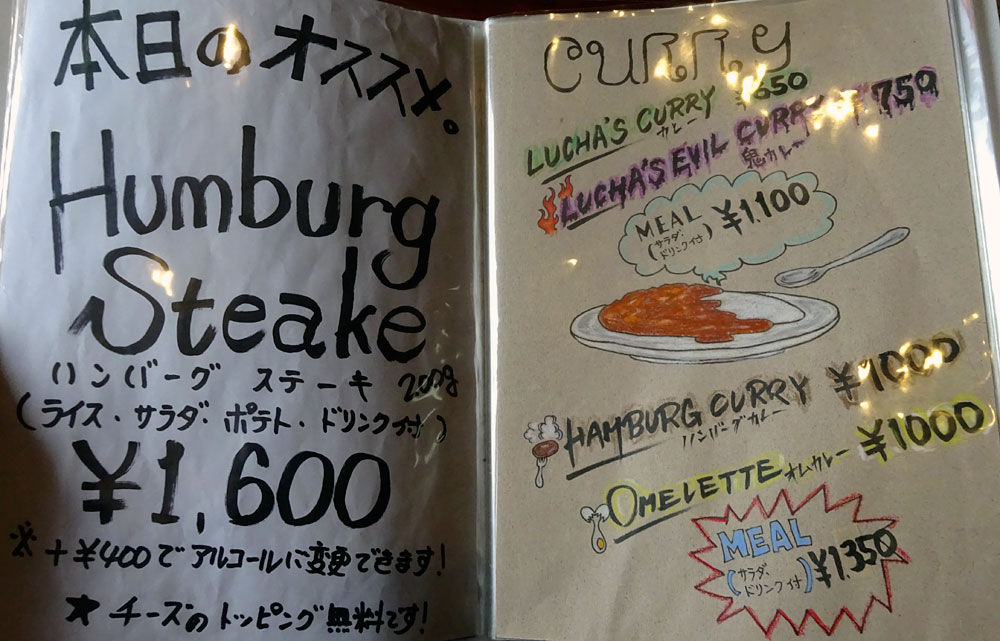 本日のオススメ。
Humburg
Steake
ハンバーグ ステーキ 200g
(ライス・サラダ・ポテト・ドリンク付)
¥1,600
※+¥400でアルコールに変更できます!
★チーズのトッピング無料です!
curry
LUCHA'S CURRY ¥650
カレー
LUCHA'S EVIL CURRY ¥750
鬼カレー
MEAL ¥1.100
(サラダ・
ドリンク付)
HAMBURG CURRY ¥1000
ハンバーグカレー
OMELETTE オムカレー ¥1000
MEAL
(サラダ、
ドリンク付) ¥1.350